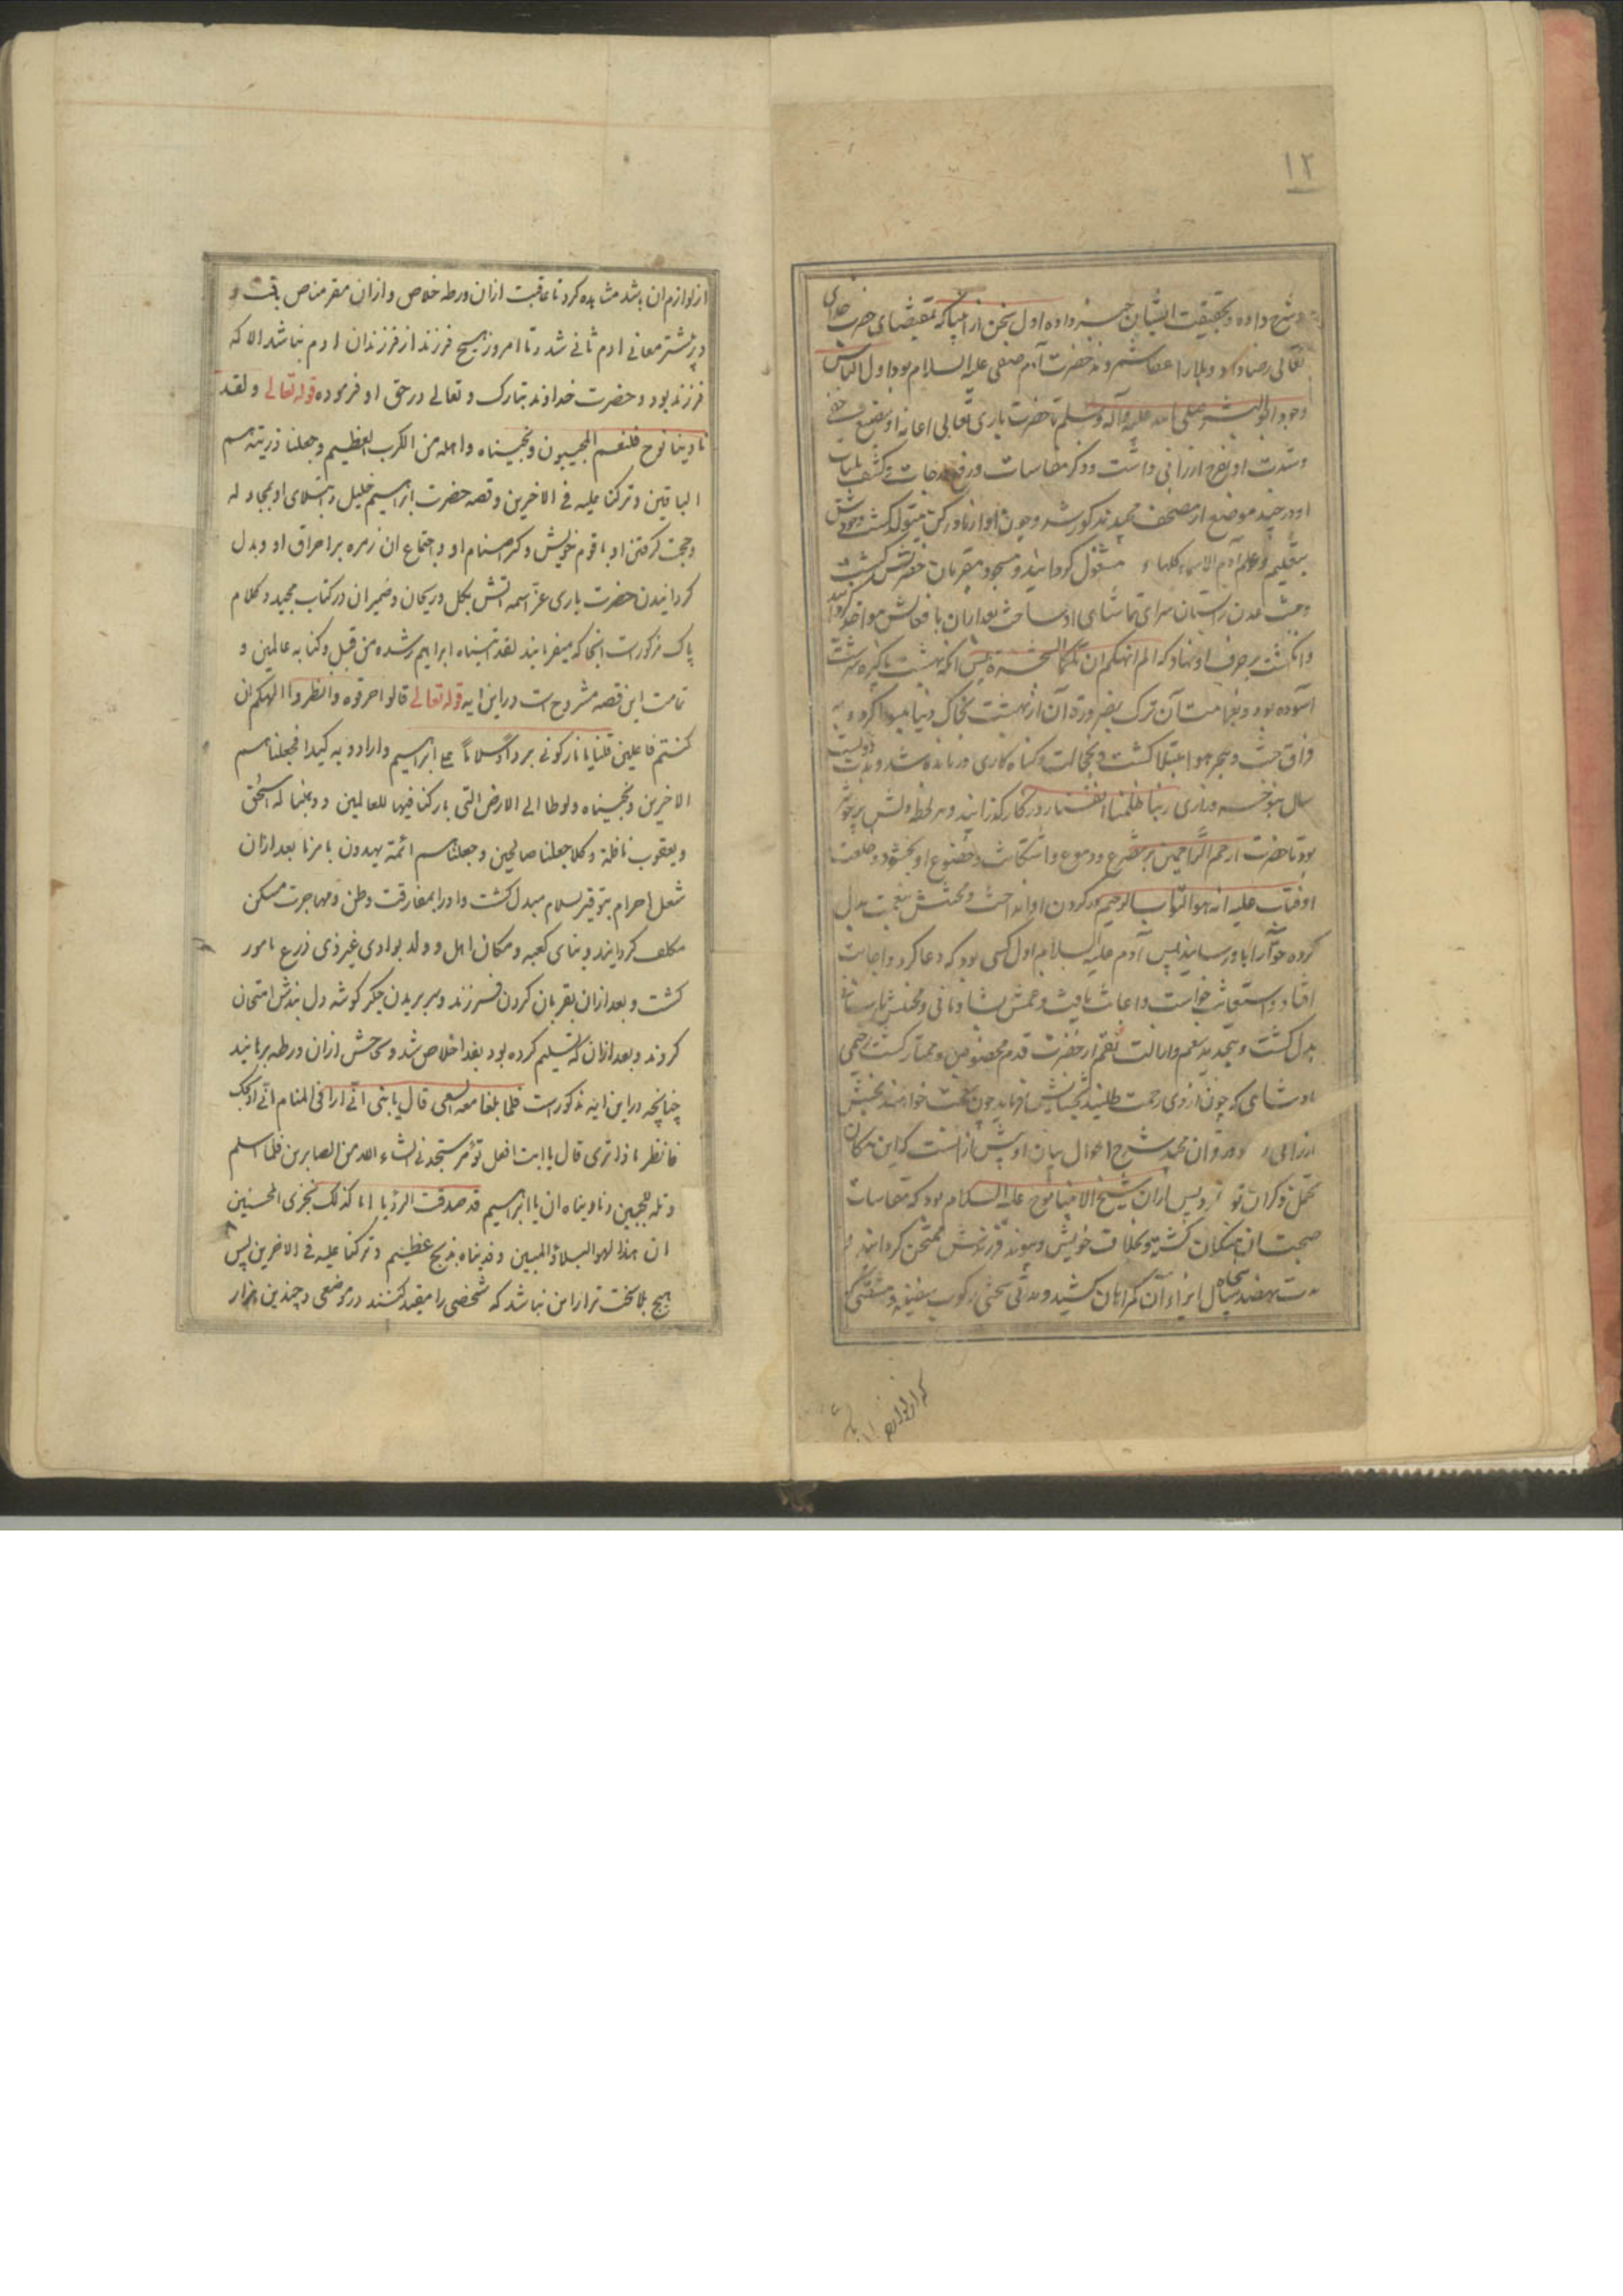 ١٢
و شرح داده و بحقیقت ایشان خبر داده اول سخن از انبیا که بمقتضای حضرت خدای
تعالی رضا داد و بلا را عطا شمرد حضرت آدم صفی علیه السلام بود اول الناس
وجود ابو البشر صلی الله علیه وآله وسلم تا حضرت باری تعالی
وشدت او بفرح ارزانی داشت و ذکر مقاسات و رفع درجات و کشف بلیات
او در چند موضع از مصحف مجید مذکور شد و چون
بتعلیم وعلم آدم الاسماء کلها مشغول گردانید و مسجود مقربان حضرتش گشت
وبهشت عدن بستان سرای تماشای او ساخت بعد ازان بافعالش مواخذ
وانگشت بر حرف او نهاد که الم انهکما عن تلکما الشجرة پس انکه بهشت
آسوده بود وبنعیم آن ترک بضرورة آن از بهشت بخاک دنیا
فراق جنت و هجر حوا مبتلا گشت و بخجالت و گناه کاری درمانده شد و مدت دویست
سال و زاری ربنا ظلمنا انفسنا روزگار گذرانید و هر لحظه
بود تا حضرت ارحم الراحمین بر تضرع و دموع و استکانت و خضوع او بخشود و خلعت
او فتاب علیه انه هو التواب الرحیم در گردن او انداخت و محنتش بنعمت بدل
کرده حوا را باو رسانید پس آدم علیه السلام اول کسی بود که دعا کرد و اجابت
افتاد و استغاثت خواست و اغاثت یافت و غمش بشادمانی و محنتش
بدل گشت و بتجدید نعم وازالت نقم از حضرت قدم مخصوص و ممتاز گشت زهی
پادشاهی که چون از وی رحمت طلبند بخشایش فرماید چون نعمت خواهند بخشش
ارزانی و در قران مجید شرح احوال بیان او پیش ازانست که این مکان
تحمل ذکر ان تواند کرد و پس ازان شیخ الانبیا نوح علیه السلام بود که مقاسات
صحبت ان و بخلافت خویش و پیوند فرزندش ممتحن گردانید و
مدت نهصد پنجاه سال ایذاء آن گمراهان کشید و مدتی سختی رکوب سفینه و مشقتی که
که از لوازم
از لوازم ان باشد مشاهده کرد تا عاقبت ازان ورطه خلاص و ازان مقر مناص یافت و
در بیشتر معانی ادم ثانی شد و تا امروز هیچ فرزند از فرزندان ادم نباشد الا که
فرزند بود و حضرت خداوند تبارک و تعالی در حق او فرموده قوله تعالی ولقد
نادینا نوح فلنعم المجیبون ونجیناه واهله من الکرب العظیم وجعلنا ذریته هم
الباقین وترکنا علیه فی الاخرین وقصه حضرت ابراهیم خلیل و ابتلای او بمجادله
وحجت گرفتن او با قوم خویش و کسر اصنام او و اجتماع ان زمره بر احراق او و بدل
گردانیدن حضرت باری عز اسمه اتش بگل و ریحان و ضمیران در کتاب مجید و کلام
پاک مذکورست انجا که میفرمایند لقد اتیناه ابراهیم رشده من قبل وکنا به عالمین و
تمامت این قصه مشروح است در این ایه قوله تعالی قالوا حرقوه وانظروا الهتکم ان
کنتم فاعلین قلنا یا نار کونی برداً وسلاماً علی ابراهیم وارادوا به کیدا فجعلناهم
الاخرین ونجیناه ولوطا الی الارض التی بارکنا فیها للعالمین ووهبنا له اسحق
ویعقوب نافلة وکلا جعلنا صالحین وجعلناهم ائمة یهدون بامرنا بعد ازان
شعل احرام بتوقیر سلام مبدل گشت و او را بمفارقت وطن و مهاجرت مسکن
مکلف گردانیدند و بنای کعبه و مکان اهل و ولد بوادی غیر ذی زرع مامور
گشت و بعد ازان بقربان کردن فرزند و سر بریدن جگر گوشه دل بندش امتحان
کردند و بعد ازان که تسلیم کرده بود بفدا خلاص شد و بخش ازان ورطه برهانید
چنانچه در این ایه مذکورست فلما بلغ معه السعی قال یا بنی انی ارا فی المنام انی اذبحک
فانظر ماذا تری قال یا ابت افعل ما تؤمر ستجدنی انشاء الله من الصابرین فلما اسلم
وتله للجبین ونادیناه ان یا ابراهیم قد صدقت الرؤیا انا کذلک نجزی المحسنین
ان هذا لهو البلاؤ المبین وفدیناه بذبح عظیم وترکنا علیه فی الاخرین پس
هیچ بلا سخت تر از این نباشد که شخصی را مقید کنند در موضعی و چندین هزار